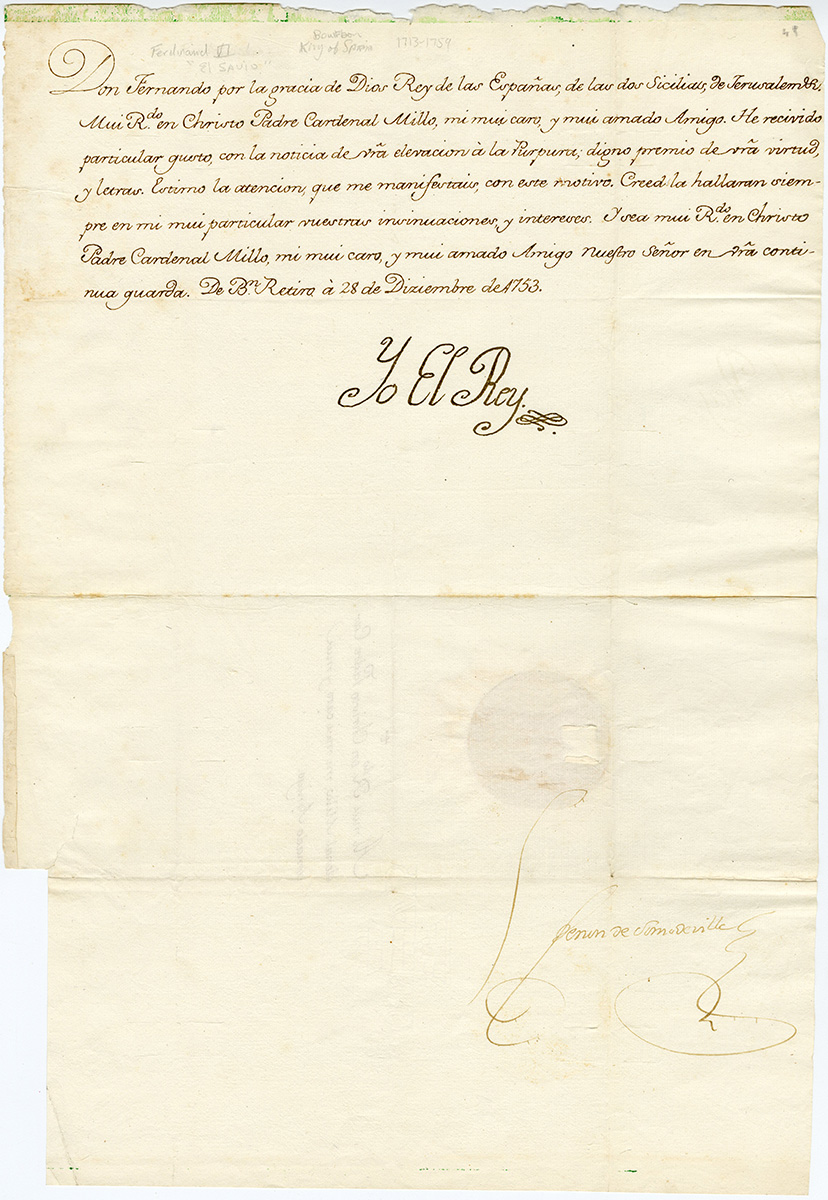 Ferdinand VI
"El SAVIO"
Bourbon
King of Spain
1713-1759
48
Don Fernando por la gracia de Dios Rey de las Españas, de las dos Sicilias, de Jerusalem &.
Mui R.do en Christo Padre Cardenal Millo, mi mui caro, y mui amado Amigo. He recivido
particular gusto, con la noticia de vr̃a elevacion à la Purpura; digno premio de vr̃a virtud,
y letras. Estimo la atencion, que me manifestais, con este motivo. Creed la hallaran siem-
pre en mi mui particular vuestras insinuaciones, y intereses. Y sea mui R.do en Christo
Padre Cardenal Millo, mi mui caro, y mui amado Amigo nuestro Señor en vr̃a conti-
nua guarda. De B.n Retiro, à 28 de Diziembre de 1753.
Yo El Rey.
Cenon de Somodevilla